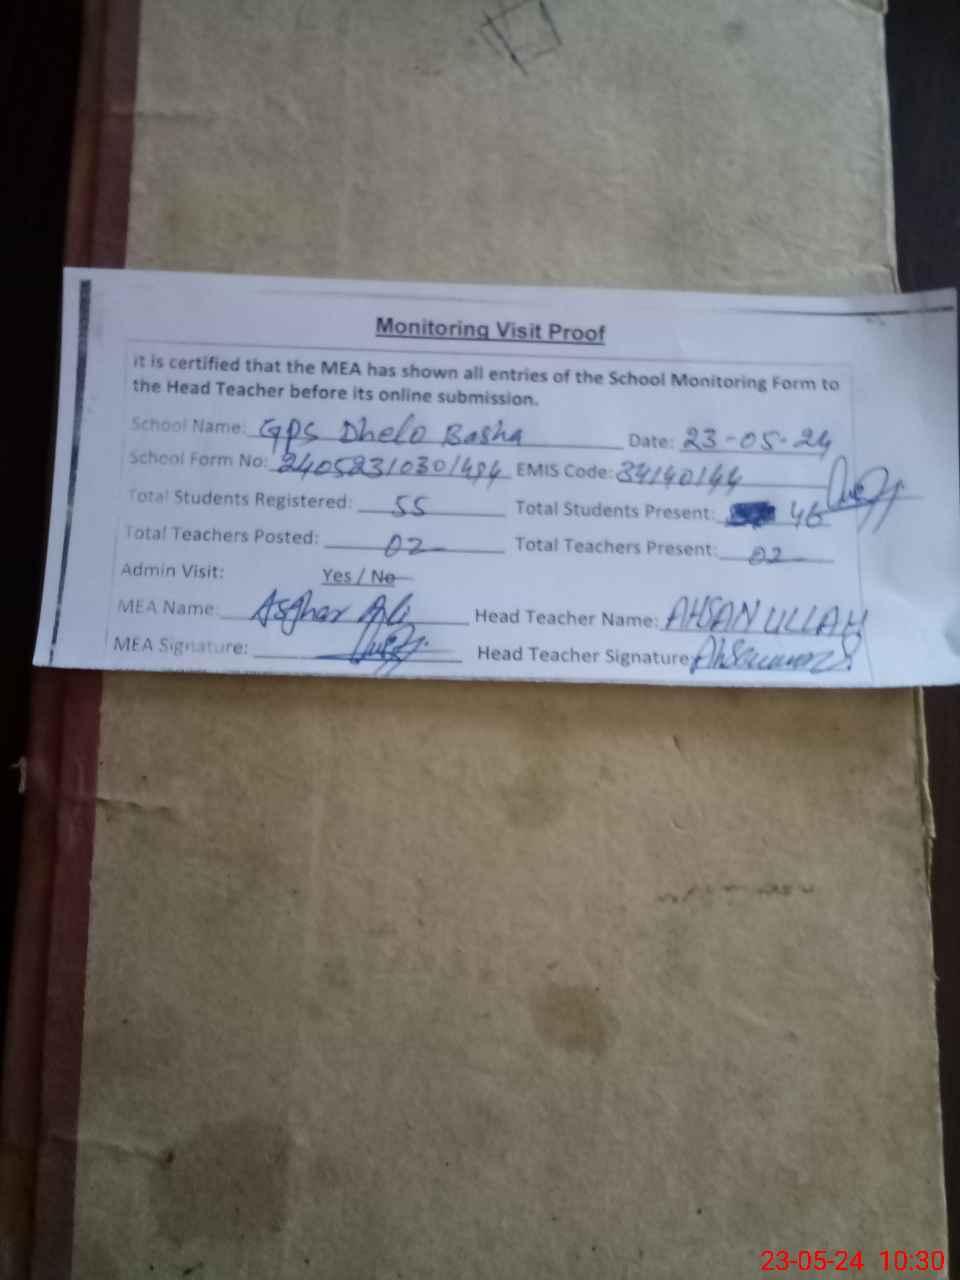 Monitoring Visit Proof
it is certified that the MEA has shown all entries of the School Monitoring Form to
the Head Teacher before its online submission.
School Name: GPS Dhelo Basha Date: 23-05-24
School Form No: 24052310301484 EMIS Code: 34140144
Total Students Registered: 55 Total Students Present: 46
Total Teachers Posted: 02 Total Teachers Present: 02
Admin Visit: Yes / No
MEA Name: Asghar Ali Head Teacher Name: AHSAN ULLAH
MEA Signature: Head Teacher Signature
23-05-24 10:30